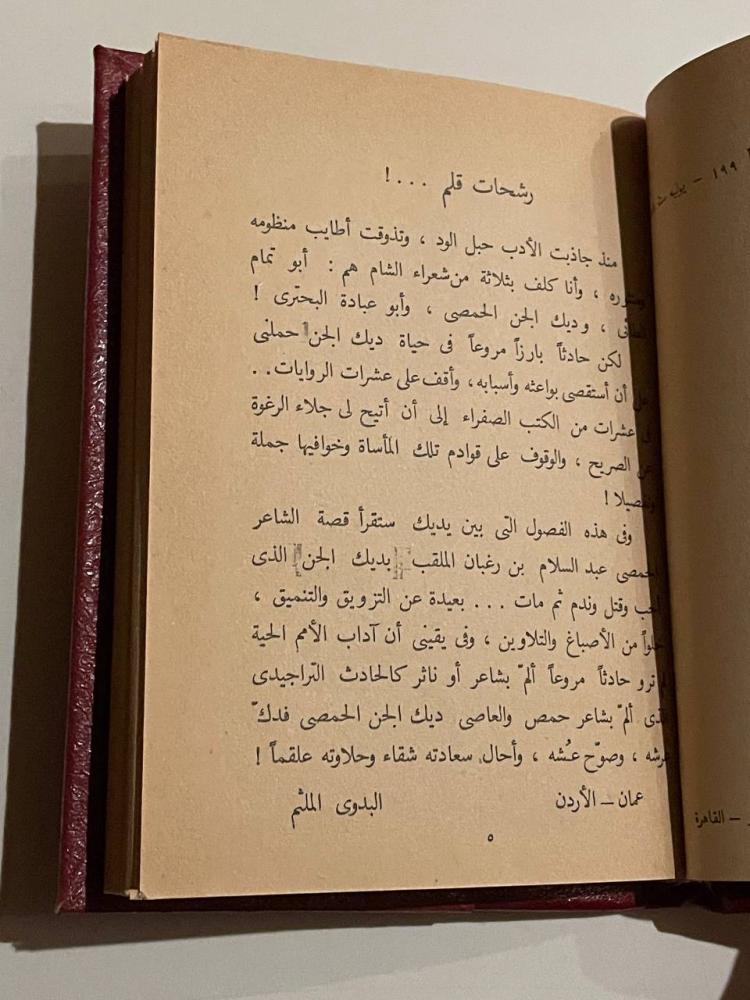 رشحات قلم ...!
منذ جاذبت الأدب حبل الود ، وتذوقت أطايب منظومه
ومنثوره ، وأنا كلف بثلاثة من شعراء الشام هم : أبو تمام
الطائى ، وديك الجن الحمصى ، وأبو عبادة البحترى !
لكن حادثاً بارزاً مروعاً فى حياة ديك الجن حملنى
على أن أستقصى بواعثه وأسبابه ، وأقف على عشرات الروايات . .
فى عشرات من الكتب الصفراء إلى أن أتيح لى جلاء الرغوة
عن الصريح ، والوقوف على قوادم تلك المأساة وخوافيها جملة
وتفصيلا !
وفى هذه الفصول التى بين يديك ستقرأ قصة الشاعر
الحمصى عبد السلام بن رغبان الملقب بديك الجن الذى
أحب وقتل وندم ثم مات ... بعيدة عن التزويق والتنميق ،
خلواً من الأصباغ والتلاوين ، وفى يقينى أن آداب الأمم الحية
لم ترو حادثاً مروعاً ألمّ بشاعر أو ناثر كالحادث التراجيدى
الذى ألمّ بشاعر حمص والعاصى ديك الجن الحمصى فدكّ
عرشه ، وصوّح عُشه ، وأحال سعادته شقاء وحلاوته علقماً !
عمان – الأردن
البدوى الملثم
٥
١٩٩ – يوليه
– القاهرة